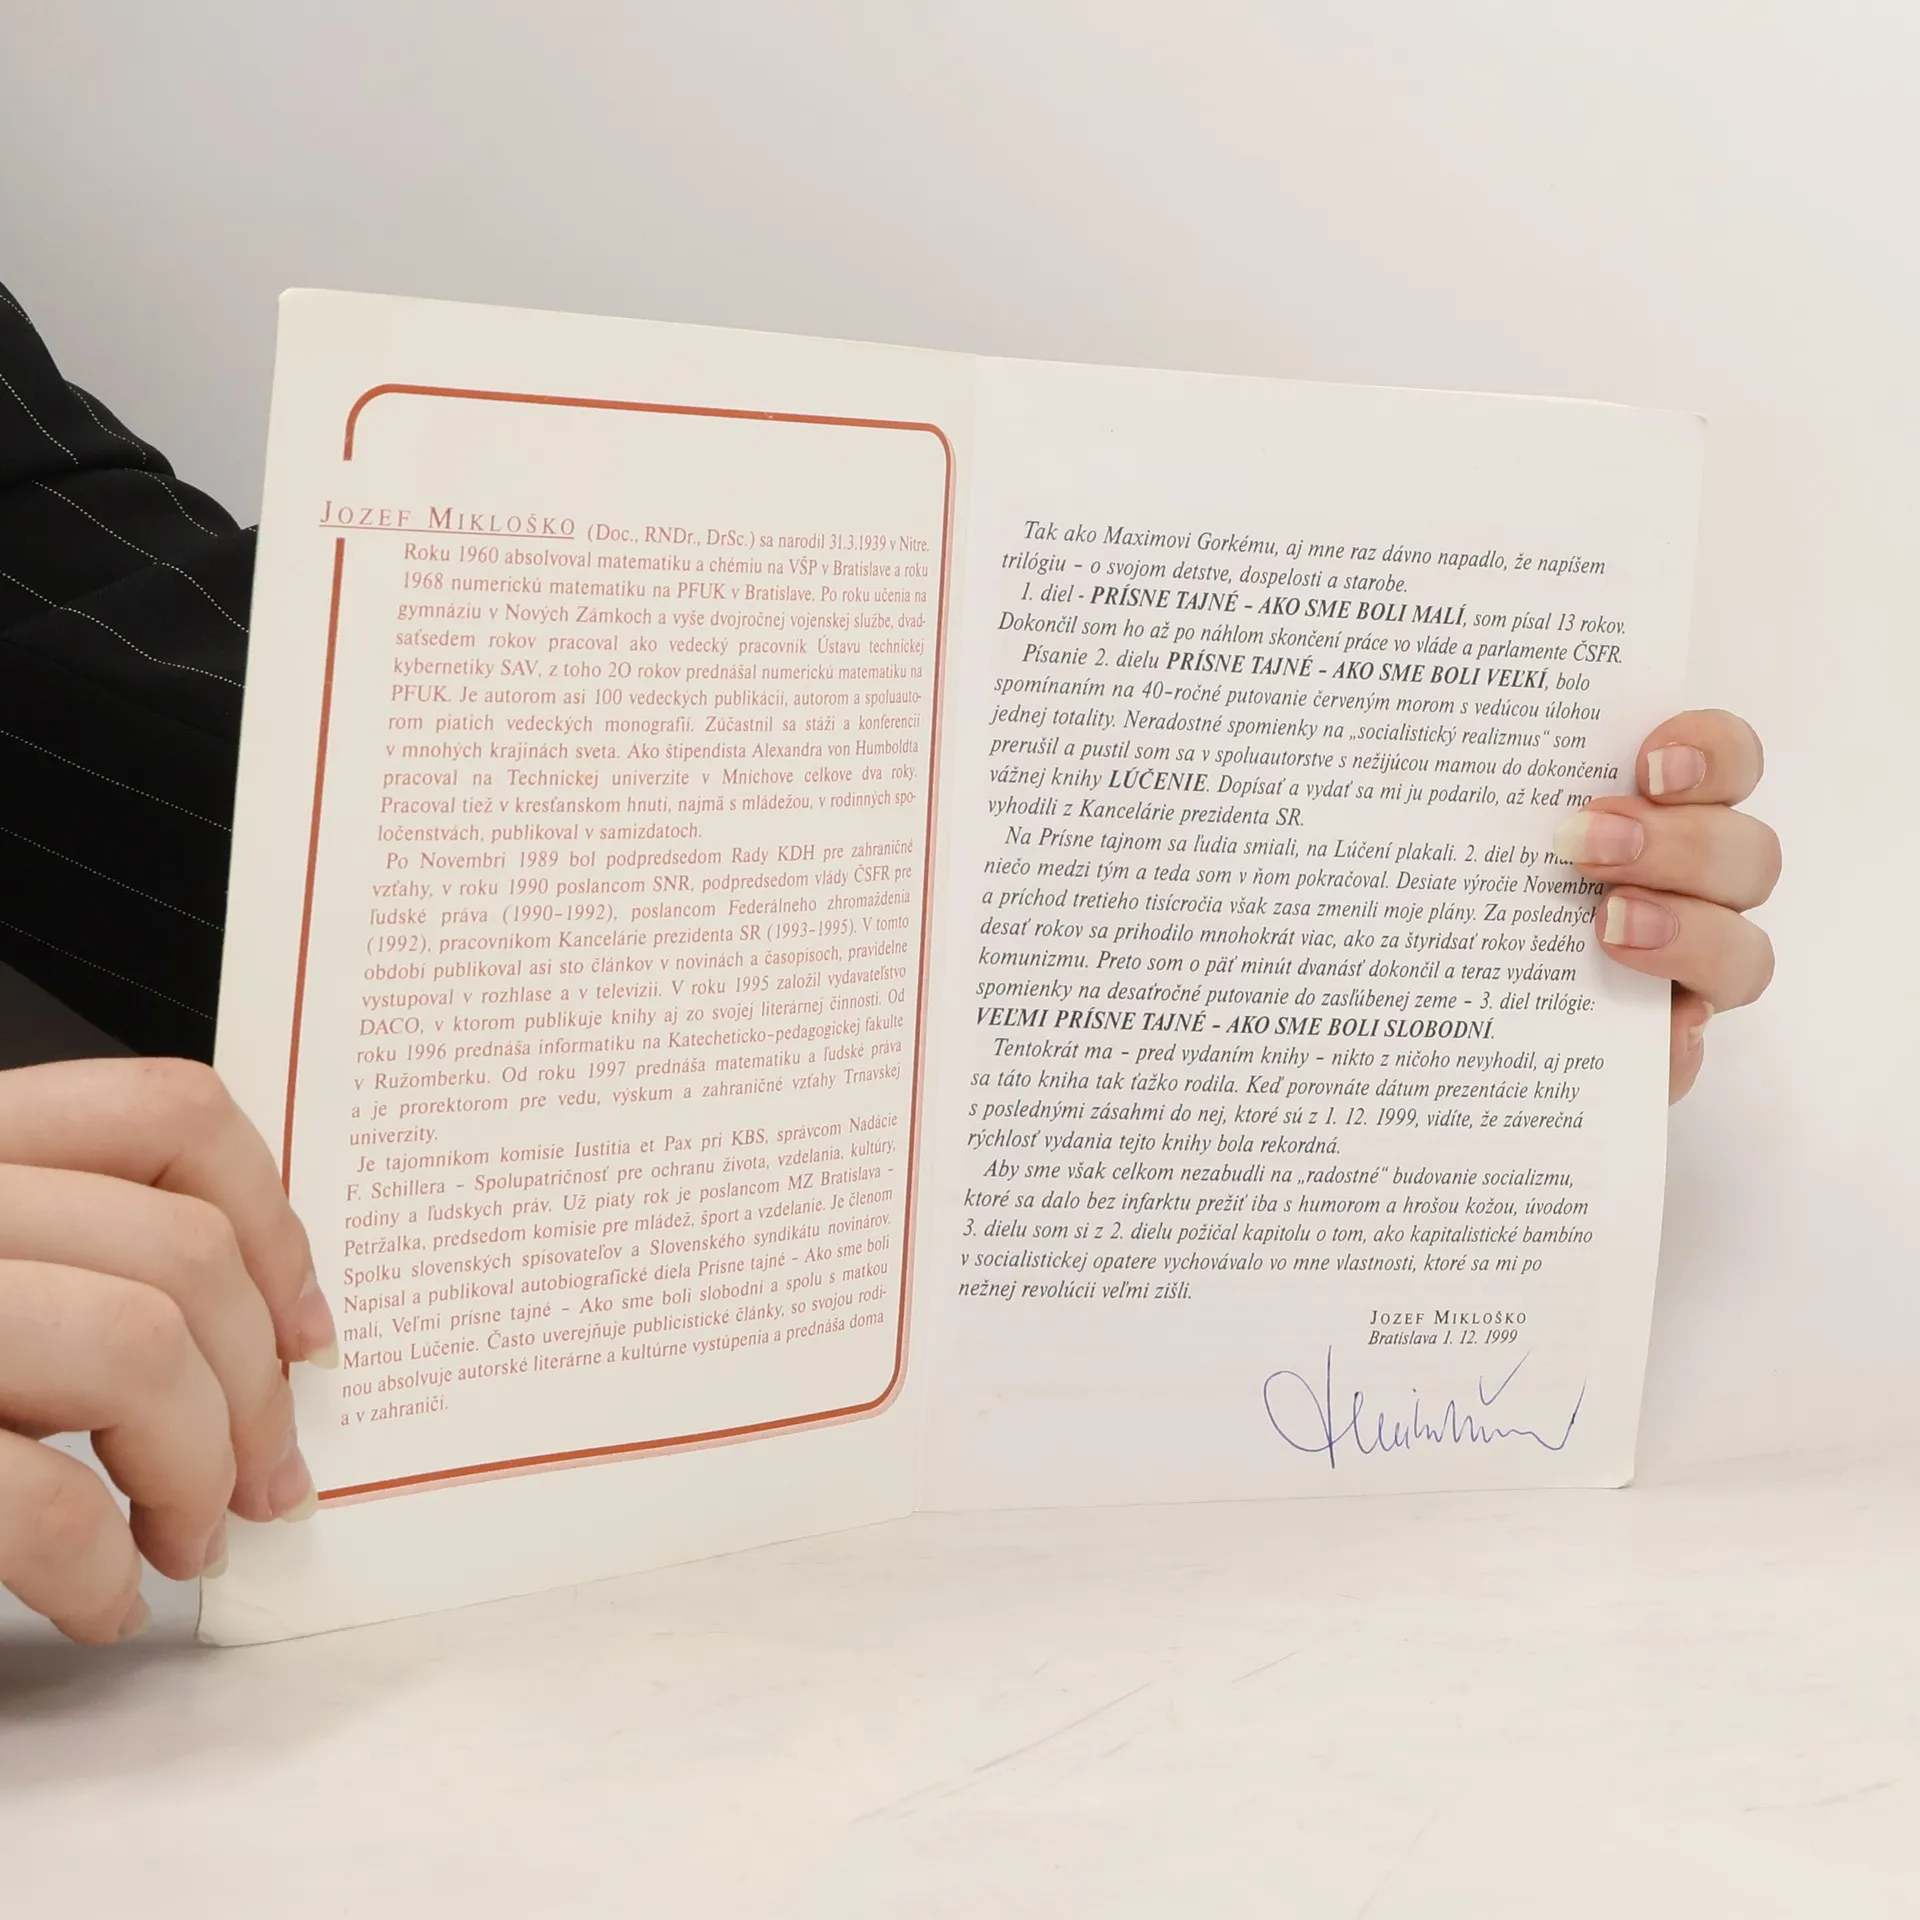 JOZEF MIKLOŠKO (Doc., RNDr., DrSc.) sa narodil 31.3.1939 v Nitre.
Roku 1960 absolvoval matematiku a chémiu na VŠP v Bratislave a roku
1968 numerickú matematiku na PFUK v Bratislave. Po roku učenia na
gymnáziu v Nových Zámkoch a vyše dvojročnej vojenskej službe, dvad-
saťsedem rokov pracoval ako vedecký pracovník Ústavu technickej
kybernetiky SAV, z toho 20 rokov prednášal numerickú matematiku na
PFUK. Je autorom asi 100 vedeckých publikácií, autorom a spoluauto-
rom piatich vedeckých monografií. Zúčastnil sa stáží a konferencií
v mnohých krajinách sveta. Ako štipendista Alexandra von Humboldta
pracoval na Technickej univerzite v Mníchove celkove dva roky.
Pracoval tiež v kresťanskom hnutí, najmä s mládežou, v rodinných spo-
ločenstvách, publikoval v samizdatoch.
Po Novembri 1989 bol podpredsedom Rady KDH pre zahraničné
vzťahy, v roku 1990 poslancom SNR, podpredsedom vlády ČSFR pre
ľudské práva (1990-1992), poslancom Federálneho zhromaždenia
(1992), pracovníkom Kancelárie prezidenta SR (1993-1995). V tomto
období publikoval asi sto článkov v novinách a časopisoch, pravidelne
vystupoval v rozhlase a v televízii. V roku 1995 založil vydavateľstvo
DACO, v ktorom publikuje knihy aj zo svojej literárnej činnosti. Od
roku 1996 prednáša informatiku na Katecheticko-pedagogickej fakulte
v Ružomberku. Od roku 1997 prednáša matematiku a ľudské práva
a je prorektorom pre vedu, výskum a zahraničné vzťahy Trnavskej
univerzity.
Je tajomníkom komisie Iustitia et Pax pri KBS, správcom Nadácie
F. Schillera - Spolupatričnosť pre ochranu života, vzdelania, kultúry,
rodiny a ľudských práv. Už piaty rok je poslancom MZ Bratislava -
Petržalka, predsedom komisie pre mládež, šport a vzdelanie. Je členom
Spolku slovenských spisovateľov a Slovenského syndikátu novinárov.
Napísal a publikoval autobiografické diela Prísne tajné - Ako sme boli
malí, Veľmi prísne tajné - Ako sme boli slobodní a spolu s matkou
Martou Lúčenie. Často uverejňuje publicistické články, so svojou rodi-
nou absolvuje autorské literárne a kultúrne vystúpenia a prednáša doma
a v zahraničí.
Tak ako Maximovi Gorkému, aj mne raz dávno napadlo, že napíšem
trilógiu - o svojom detstve, dospelosti a starobe.
1. diel - PRÍSNE TAJNÉ - AKO SME BOLI MALÍ, som písal 13 rokov.
Dokončil som ho až po náhlom skončení práce vo vláde a parlamente ČSFR.
Písanie 2. dielu PRÍSNE TAJNÉ - AKO SME BOLI VEĽKÍ, bolo
spomínaním na 40-ročné putovanie červeným morom s vedúcou úlohou
jednej totality. Neradostné spomienky na „socialistický realizmus“ som
prerušil a pustil som sa v spoluautorstve s nežijúcou mamou do dokončenia
vážnej knihy LÚČENIE. Dopísať a vydať sa mi ju podarilo, až keď ma
vyhodili z Kancelárie prezidenta SR.
Na Prísne tajnom sa ľudia smiali, na Lúčení plakali. 2. diel by
niečo medzi tým a teda som v ňom pokračoval. Desiate výročie Novembra
a príchod tretieho tisícročia však zasa zmenili moje plány. Za posledných
desať rokov sa prihodilo mnohokrát viac, ako za štyridsať rokov šedého
komunizmu. Preto som o päť minút dvanásť dokončil a teraz vydávam
spomienky na desaťročné putovanie do zasľúbenej zeme - 3. diel trilógie:
VEĽMI PRÍSNE TAJNÉ - AKO SME BOLI SLOBODNÍ.
Tentokrát ma - pred vydaním knihy - nikto z ničoho nevyhodil, aj preto
sa táto kniha tak ťažko rodila. Keď porovnáte dátum prezentácie knihy
s poslednými zásahmi do nej, ktoré sú z 1. 12. 1999, vidíte, že záverečná
rýchlosť vydania tejto knihy bola rekordná.
Aby sme však celkom nezabudli na „radostné“ budovanie socializmu,
ktoré sa dalo bez infarktu prežiť iba s humorom a hrošou kožou, úvodom
3. dielu som si z 2. dielu požičal kapitolu o tom, ako kapitalistické bambíno
v socialistickej opatere vychovávalo vo mne vlastnosti, ktoré sa mi po
nežnej revolúcii veľmi zišli.
JOZEF MIKLOŠKO
Bratislava 1. 12. 1999